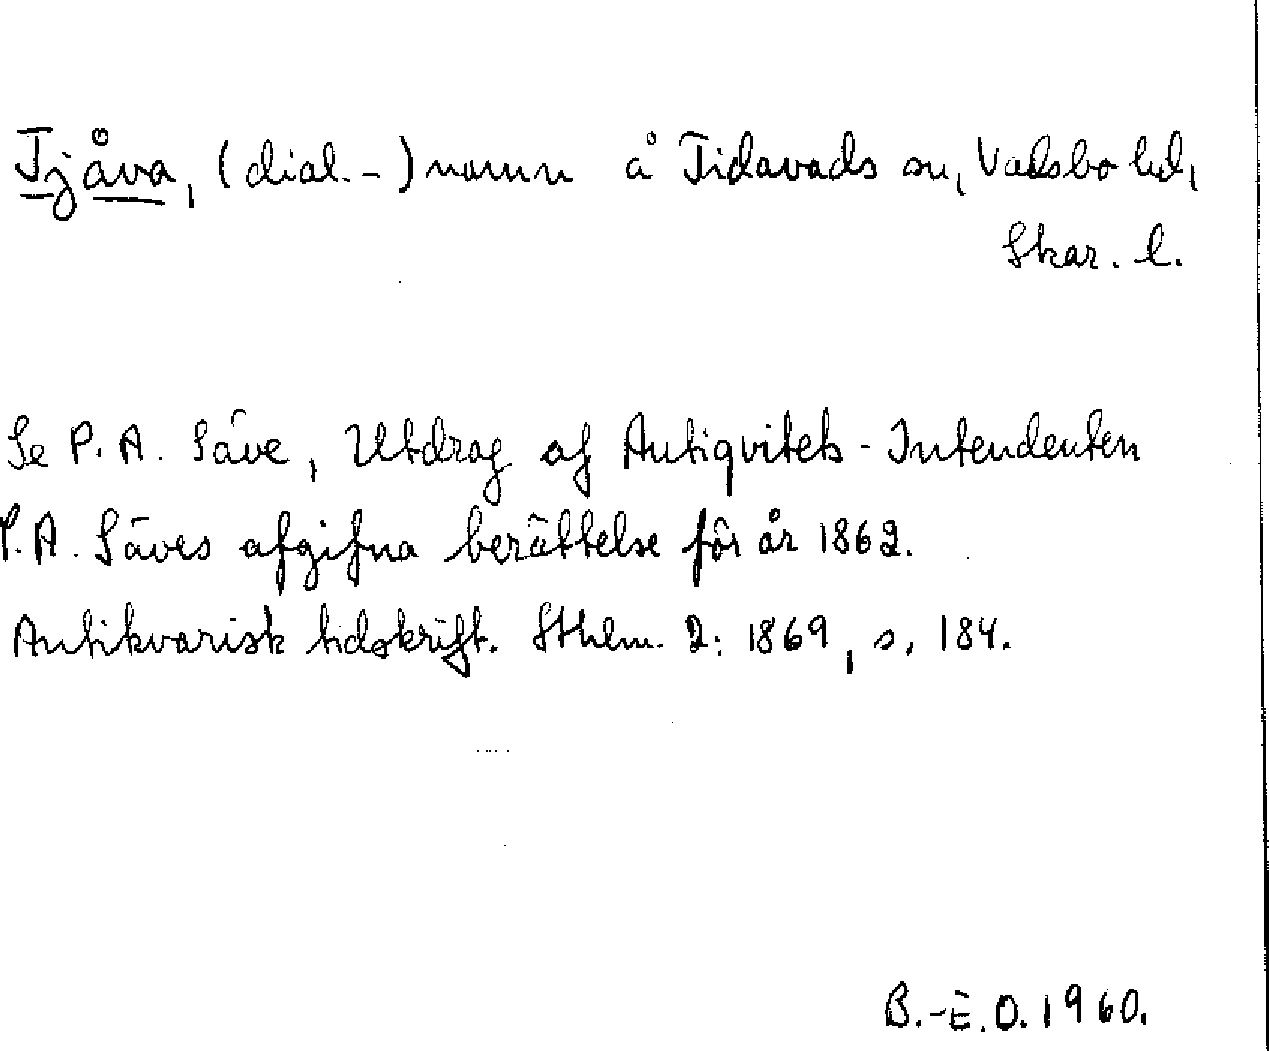 Tjåva, (dial.-)namn å Tidavads sn, Vadsbo hd,
Skar. l.
Se P. A. Säve, Utdrag af Antiqvitets-Intendenten
P. A. Säves afgifna berättelse för år 1862.
Antikvarisk tidskrift. Sthlm. 2: 1869, s. 184.
B.-E.O. 1960.